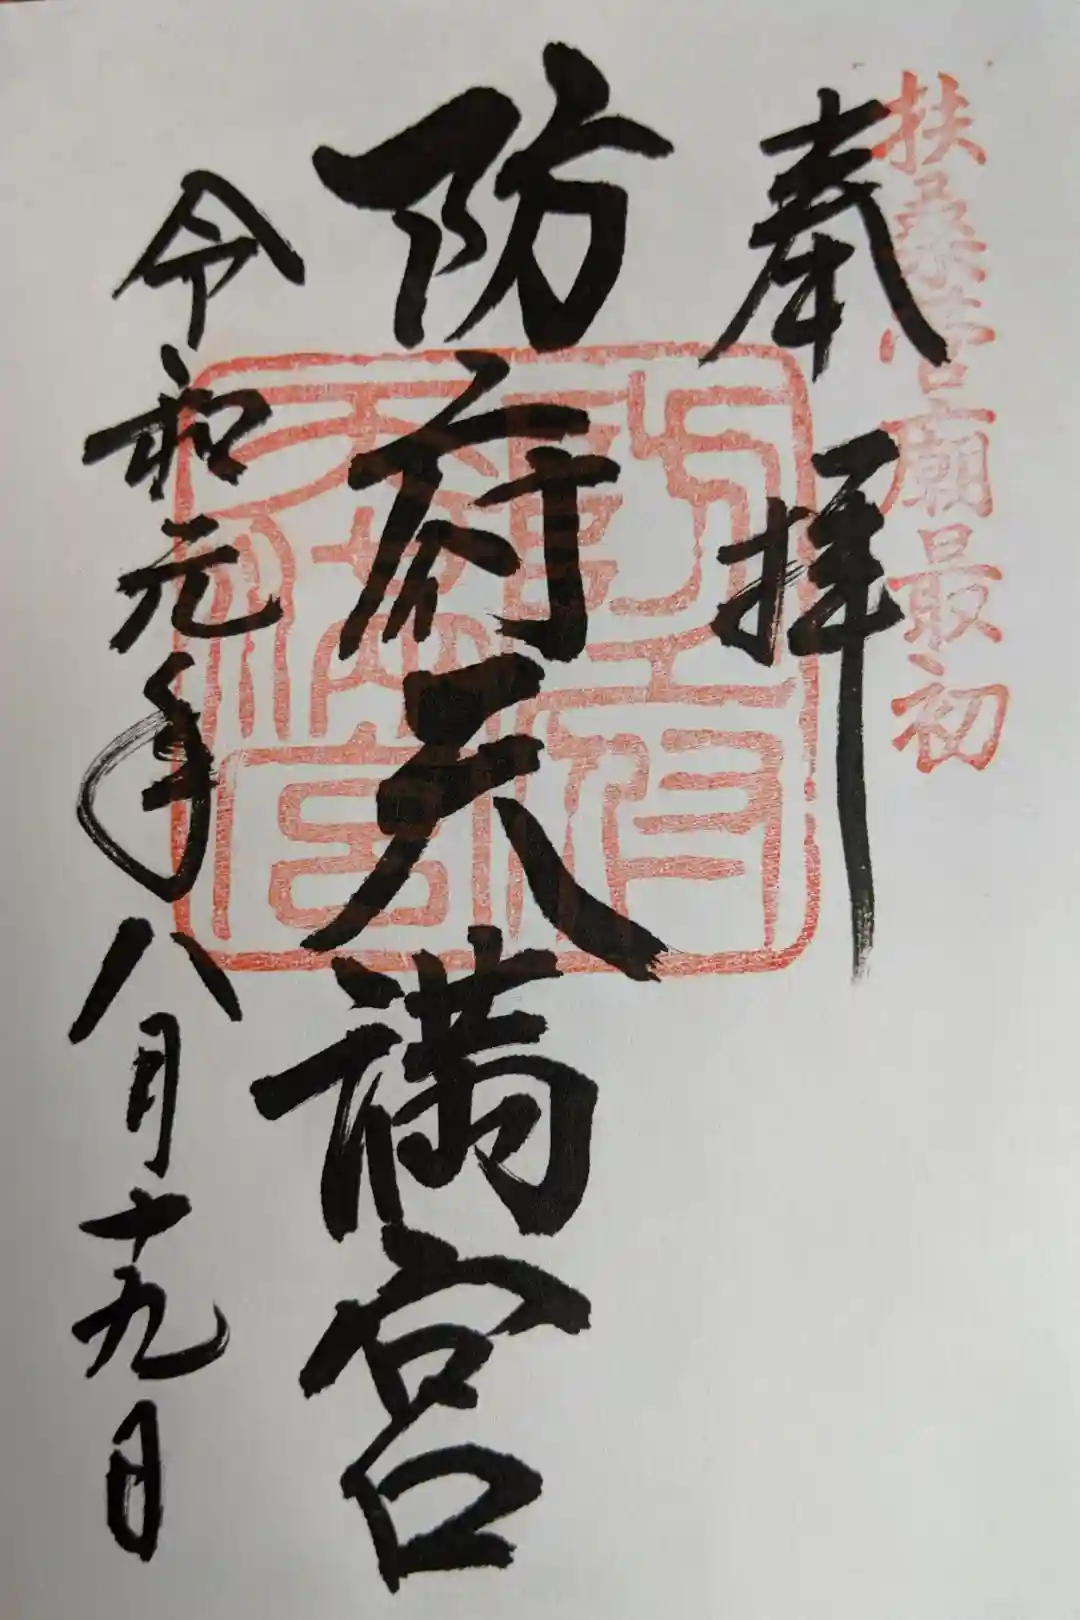 扶桑菅廟最初
奉拝
防府天満宮
令和元年八月十九日